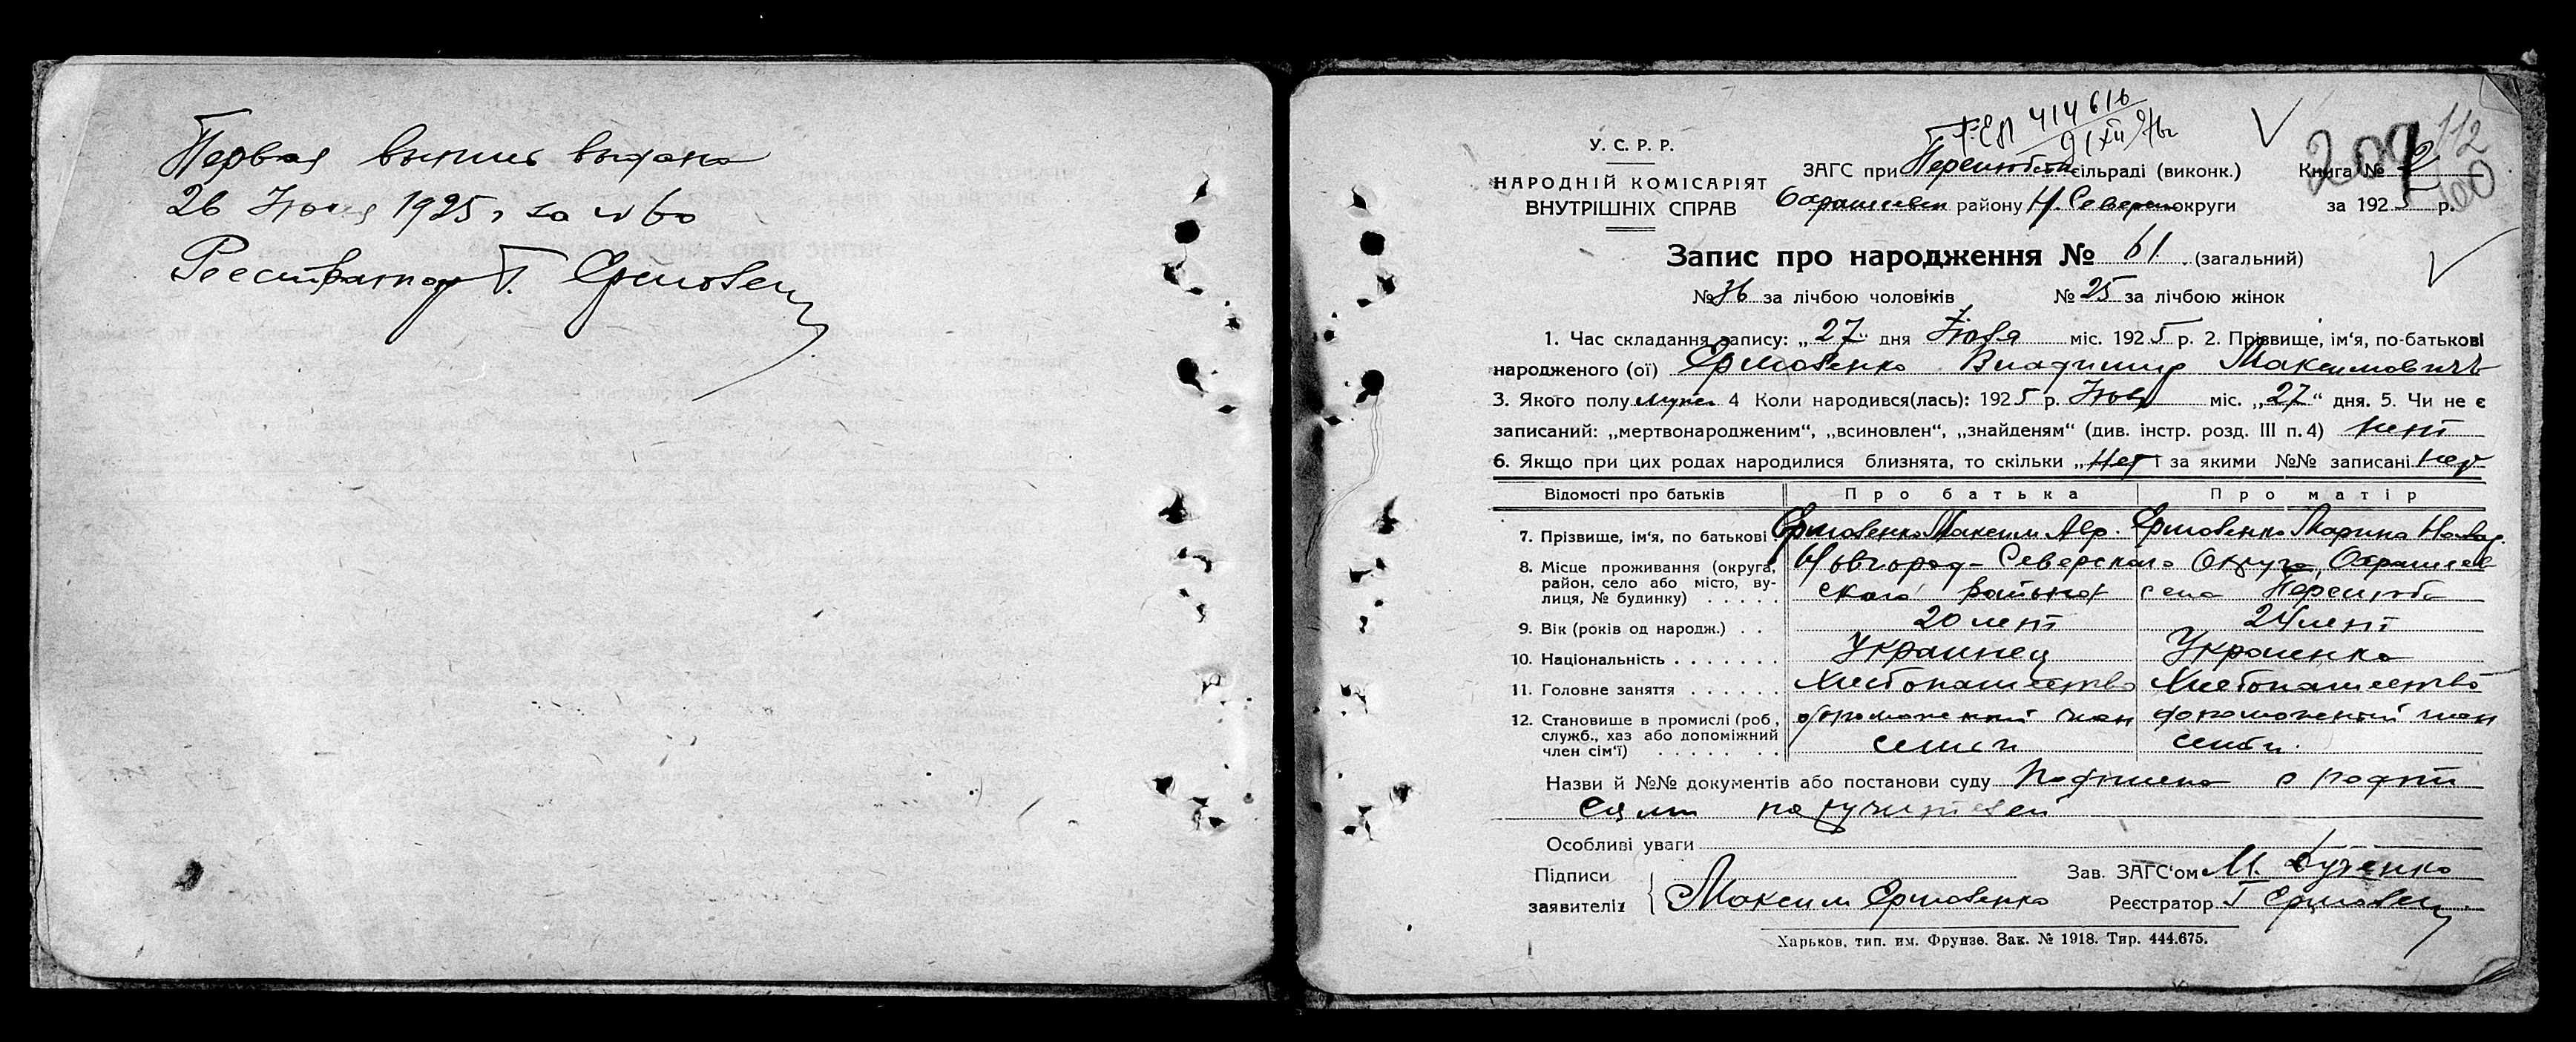 Первая выпись выдана
26 Июня 1925 г за № 60
Реестратор Г.
414616
У. С. Р. Р.
НАРОДНІЙ КОМІСАРІЯТ
ВНУТРІШНІХ СПРАВ
ЗАГС при Перелюбск сільраді (виконк.)
району Н. Северск округи
Книга № 2
за 1925 р.
207
112
100
Запис про народження № 61 (загальний)
№ 36 за лічбою чоловіків № 25 за лічбою жінок
1. Час складання запису: „27“ дня міс. 1925 р. 2. Прізвище, ім‘я, по-батькові
народженого (ої) Ермоленко Владимир Максимовичъ
3. Якого полу муж 4 Коли народився(лась): 1925 р. міс. „27“ дня. 5. Чи не є
записаний: „мертвонародженим“, „всиновлен“, „знайденям“ (див. інстр. розд. III п. 4) нет
6. Якщо при цих родах народилися близнята, то скільки „Нет і за якими №№ записані нет
Відомості про батьків Про батька Про матір
7. Прізвище, ім‘я, по батькові Ермоленко Максим Ермоленко Марина
8. Місце проживання (округа, район, село або місто, вулиця, № будинку) Новгород-Северского Округа,
ского района села Перелюба
9. Вік (років од народж.) 20 лет 24 лет
10. Національність Украинец Украинка
11. Головне заняття Хлебопашество Хлебопашество
12. Становище в промислі (роб., служб., хаз або допоміжний член сім‘ї) член член
семьи семьи.
Назви й №№ документів або постанови суду Подписка о
Особливі уваги
Підписи
заявителів Максим Ермоленко
Зав. ЗАГС‘ом М. Луценко
Реєстратор Г
Харьков, тип. им. Фрунзе. Зак. № 1918. Тир. 444.675.